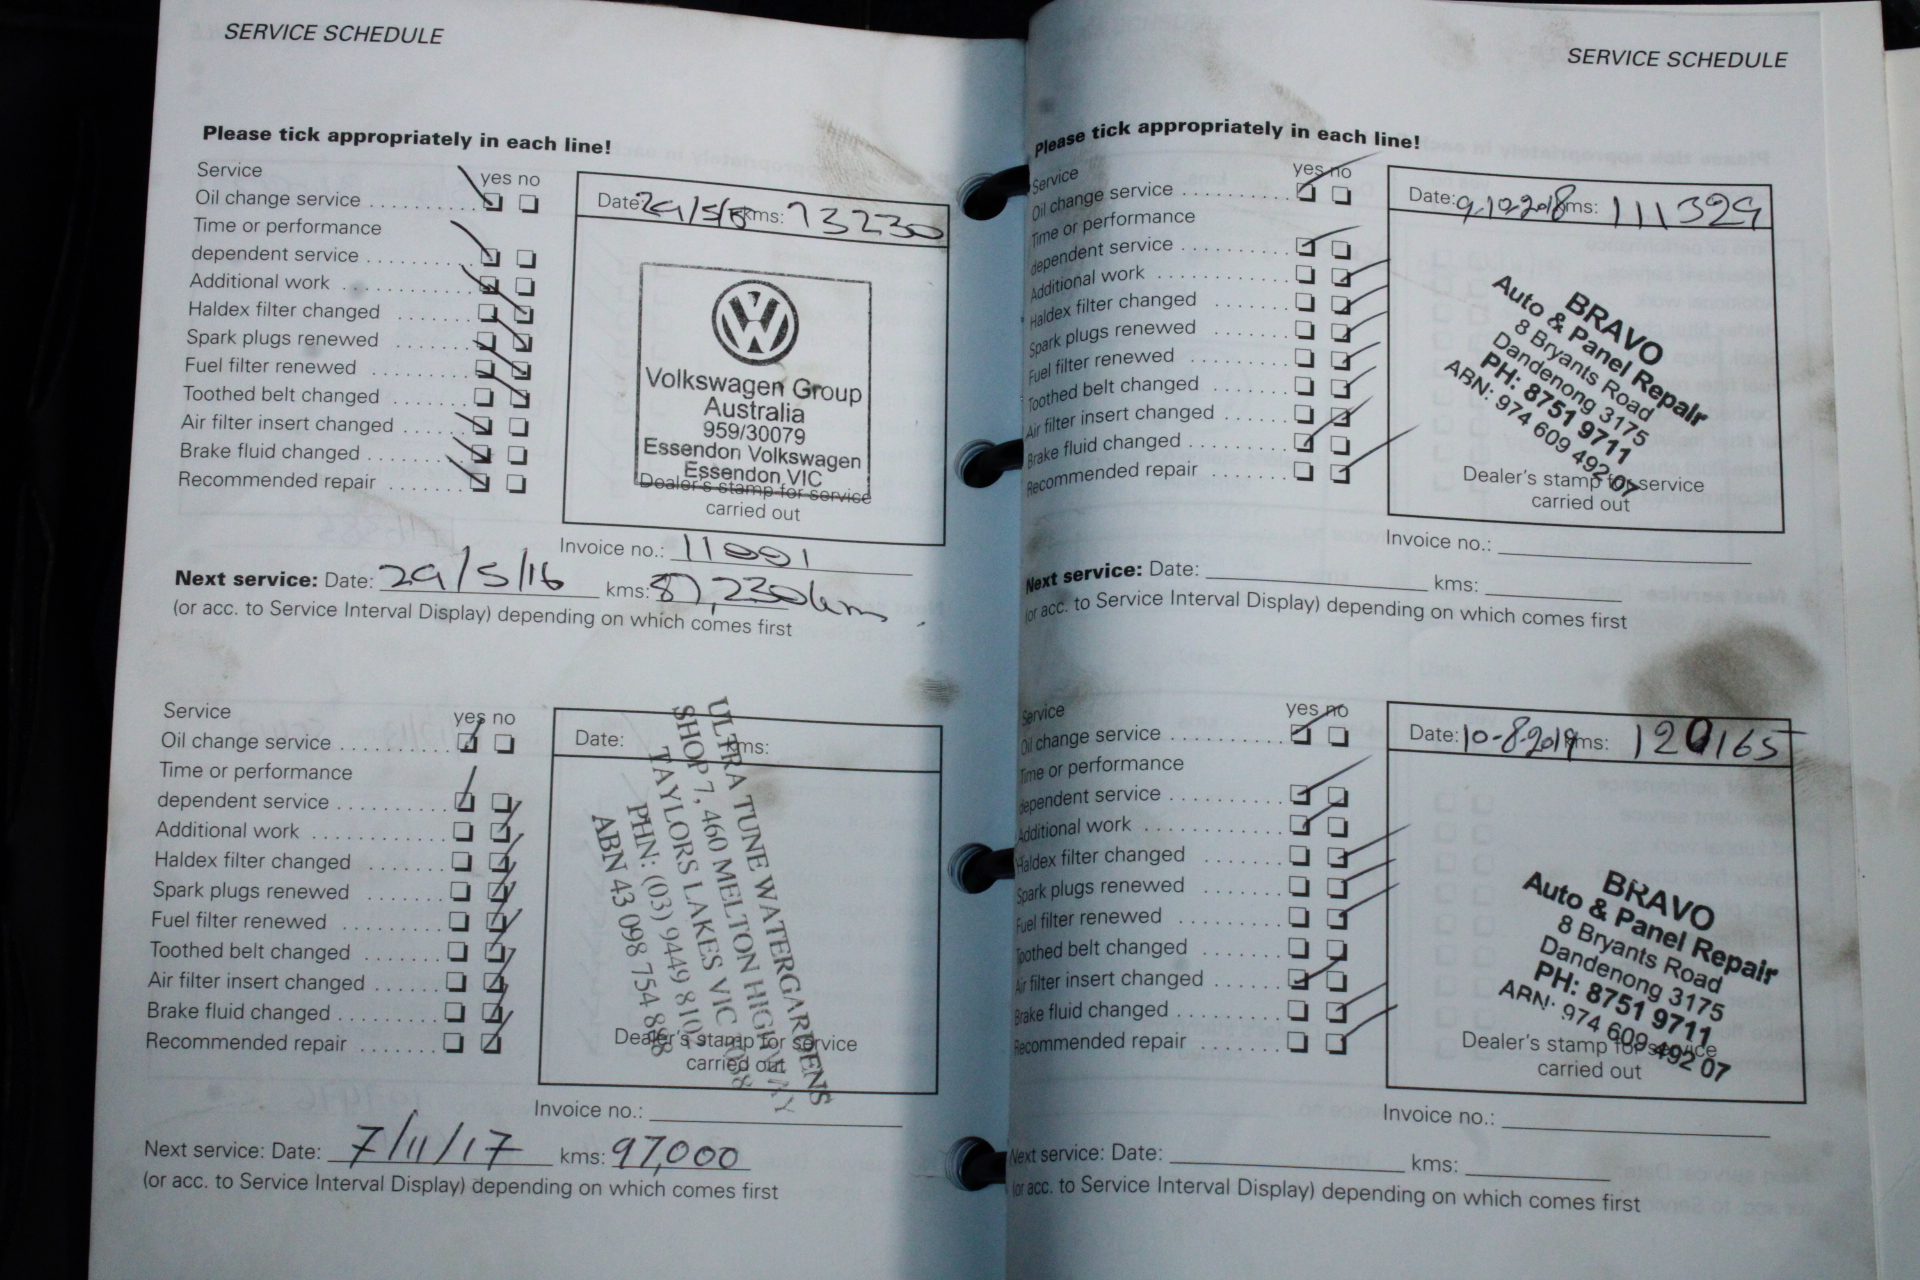 SERVICE SCHEDULE
Please tick appropriately in each line!
Service yes no
Oil change service
Time or performance
dependent service
Additional work
Haldex filter changed
Spark plugs renewed
Fuel filter renewed
Toothed belt changed
Air filter insert changed
Brake fluid changed
Recommended repair
Date: kms: 73230
Volkswagen Group
Australia
959/30079
Essendon Volkswagen
Essendon VIC
Dealer's stamp for service
carried out
Invoice no.:
Next service: Date: 29/5/16 kms: 87,230km
(or acc. to Service Interval Display) depending on which comes first
Service yes no
Oil change service
Time or performance
dependent service
Additional work
Haldex filter changed
Spark plugs renewed
Fuel filter renewed
Toothed belt changed
Air filter insert changed
Brake fluid changed
Recommended repair
Date: kms:
ULTRA TUNE WATERGARDENS
SHOP 7, 460 MELTON HIGHWAY
TAYLORS LAKES VIC
PHN: (03) 9449
ABN 43 098 754 888
Dealer's stamp for service
carried out
Invoice no.:
Next service: Date: 7/11/17 kms: 97,000
(or acc. to Service Interval Display) depending on which comes first
SERVICE SCHEDULE
Please tick appropriately in each line!
Service yes no
Oil change service
Time or performance
dependent service
Additional work
Haldex filter changed
Spark plugs renewed
Fuel filter renewed
Toothed belt changed
Air filter insert changed
Brake fluid changed
Recommended repair
Date: 9.10.2018 kms: 111329
BRAVO
Auto & Panel Repair
8 Bryants Road
Dandenong 3175
PH: 8751 9711
ABN: 974 609 492 07
Dealer's stamp for service
carried out
Invoice no.:
Next service: Date: kms:
(or acc. to Service Interval Display) depending on which comes first
Service yes no
Oil change service
Time or performance
dependent service
Additional work
Haldex filter changed
Spark plugs renewed
Fuel filter renewed
Toothed belt changed
Air filter insert changed
Brake fluid changed
Recommended repair
Date: 10-8-2019 kms: 120165
BRAVO
Auto & Panel Repair
8 Bryants Road
Dandenong 3175
PH: 8751 9711
ABN: 974 609 492 07
Dealer's stamp for service
carried out
Invoice no.:
Next service: Date: kms:
(or acc. to Service Interval Display) depending on which comes first